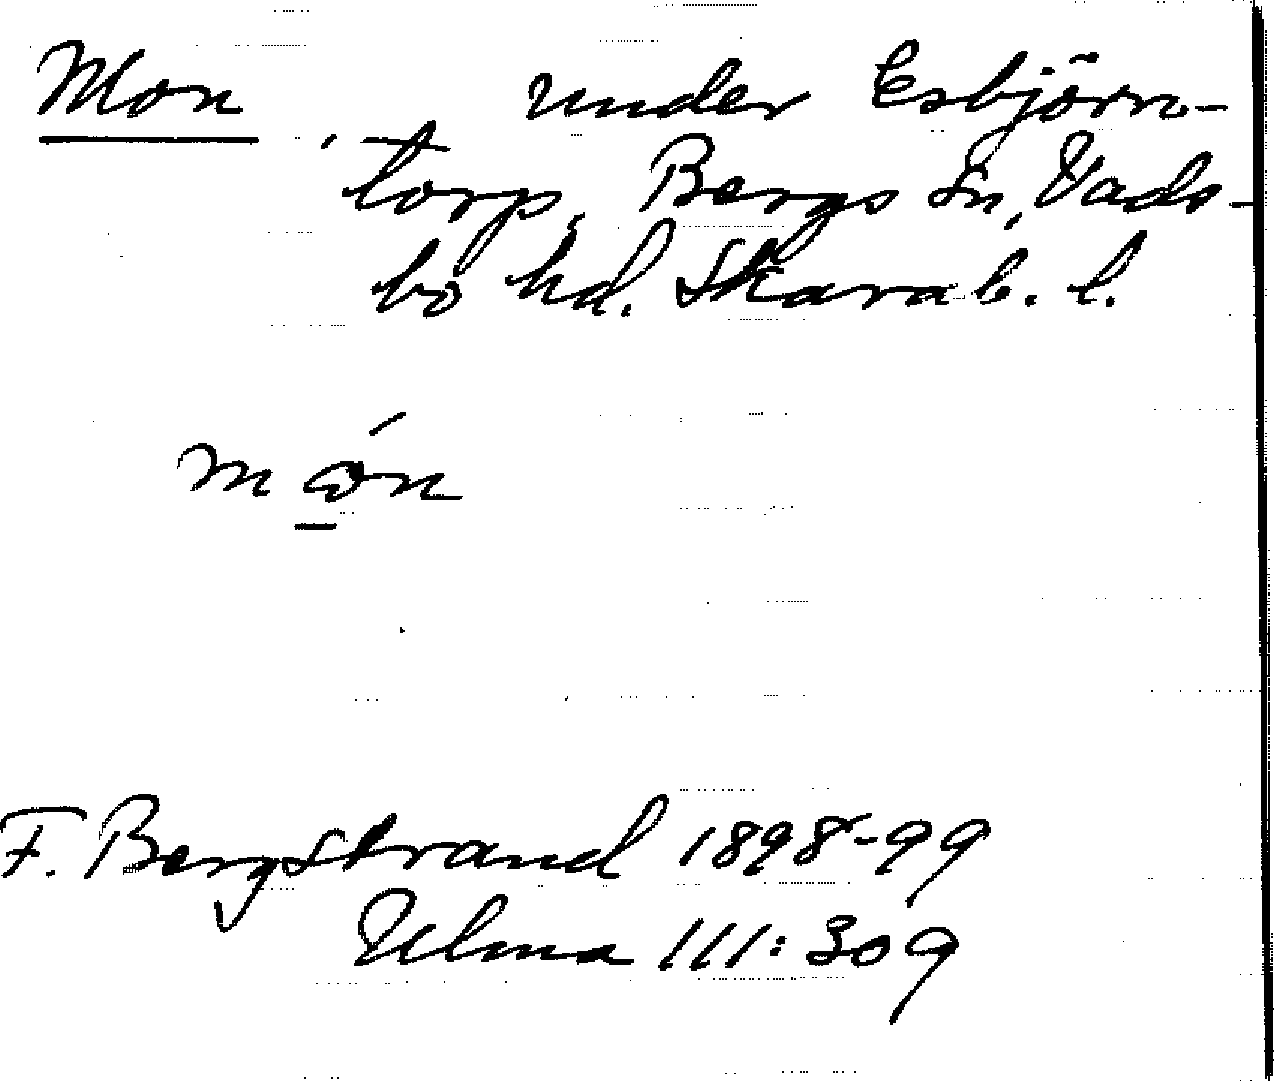 Mon, under Esbjörn-
torp, Bergs sn, Vads-
bo hd. Skarab. l.
mώ̲n
F. Bergstrand 1898-99
Ulma 111:309